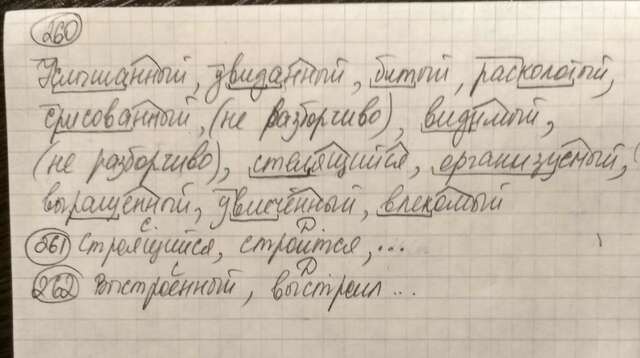 260
Услышанный, увиданный, битый, расколотый,
срисованный, (не разборчиво), видимый,
(не разборчиво), стелящийся, организуемый,
выращенный, увисченный, влекомый
С. Д
261 Строящийся, строится, ...
С Д
262 Выстроенный, выстроил ...